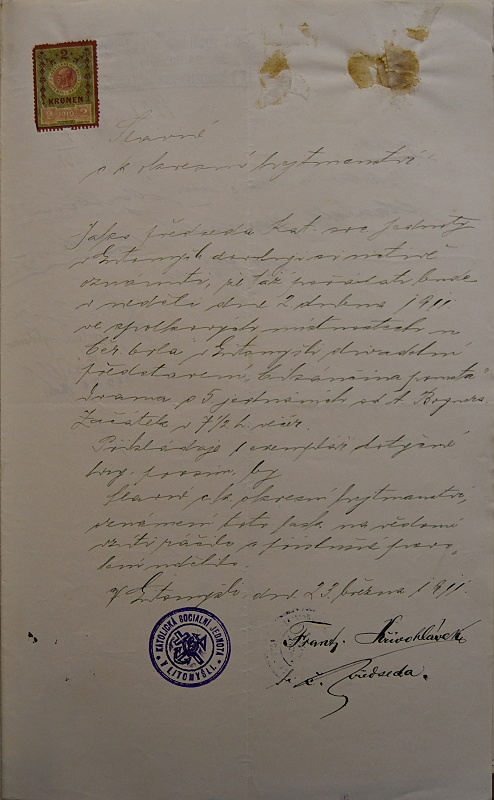 2
KRUNEN
2 1910 2
Slavné
c. k. okresní hejtmanství
Jako předseda Kat. soc. jednoty
v Litomyšli dovoluji si uctivě
oznámiti, že táž pořádati bude
v neděli dne 2. dubna 1911
ve spolkových místnostech u
čer. orla v Litomyšli divadelní
představení, "Cikánčina pomsta"
drama o 5 jednáních od A. Bognera.
Začátek v 7½ h. več.
Přikládaje 1 exemplář dotyčné
by
slavné c. k. okresní hejtmanství,
oznámení toto jak na vědomí
vzíti ráčilo a příslušné povo-
lení udělilo.
V Litomyšli, dne 23. března 1911.
KATOLICKÁ SOCIALNÍ JEDNOTA
V LITOMYŠLI.
Frant. Křivohlávek
t. č. předseda.